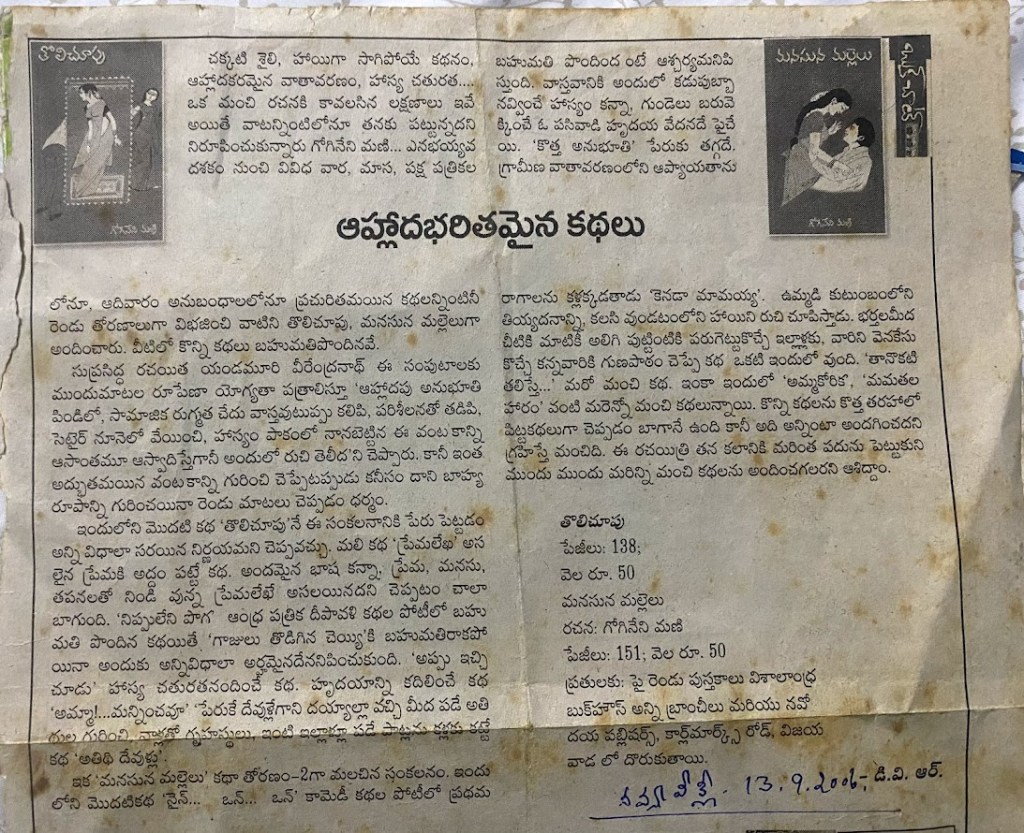 తొలిచూపు
గోగినేని మణి
మనసున మల్లెలు
గోగినేని మణి
చక్కటి శైలి, హాయిగా సాగిపోయే కథనం,
ఆహ్లాదకరమైన వాతావరణం, హాస్య చతురత....
ఒక మంచి రచనకి కావలసిన లక్షణాలు ఇవే
అయితే వాటన్నింటిలోనూ తనకు పట్టున్నదని
నిరూపించుకున్నారు గోగినేని మణి... ఎనభయ్యవ
దశకం నుంచి వివిధ వార, మాస, పక్ష పత్రికల
బహుమతి పొందింద ంటే ఆశ్చర్యమనిపి
స్తుంది. వాస్తవానికి అందులో కడుపుబ్బా
నవ్వించే హాస్యం కన్నా, గుండెలు బరువె
క్కించే ఓ పసివాడి హృదయ వేదనదే పైచే
యి. 'కొత్త అనుభూతి' పేరుకు తగ్గదే.
గ్రామీణ వాతావరణంలోని ఆప్యాయతాను
ఆహ్లాదభరితమైన కథలు
లోనూ, ఆదివారం అనుబంధాలలోనూ ప్రచురితమయిన కథలన్నింటినీ
రెండు తోరణాలుగా విభజించి వాటిని తొలిచూపు, మనసున మల్లెలుగా
అందించారు. వీటిలో కొన్ని కథలు బహుమతిపొందినవే.
సుప్రసిద్ధ రచయిత యండమూరి వీరేంద్రనాథ్ ఈ సంపుటాలకు
ముందుమాటల రూపేణా యోగ్యతా పత్రాలిస్తూ 'ఆహ్లాదపు అనుభూతి
పిండిలో, సామాజిక రుగ్మత చేదు వాస్తవుటుప్పు కలిపి, పరిశీలనతో తడిపి,
సెటైర్ నూనెలో వేయించి, హాస్యం పాకంలో నానబెట్టిన ఈ వంటకాన్ని
ఆసాంతమూ ఆస్వాదిస్తేగానీ అందులో రుచి తెలీద'ని చెప్పారు. కానీ ఇంత
అద్భుతమయిన వంటకాన్ని గురించి చెప్పేటప్పుడు కనీసం దాని బాహ్య
రూపాన్ని గురించయినా రెండు మాటలు చెప్పడం ధర్మం.
ఇందులోని మొదటి కథ 'తొలిచూపు'నే ఈ సంకలనానికి పేరు పెట్టడం
అన్ని విధాలా సరయిన నిర్ణయమని చెప్పవచ్చు. మలి కథ 'ప్రేమలేఖ' అస
లైన ప్రేమకి అద్దం పట్టే కథ. అందమైన భాష కన్నా, ప్రేమ, మనసు,
తపనలతో నిండి వున్న ప్రేమలేఖే అసలయినదని చెప్పటం చాలా
బాగుంది. 'నిప్పులేని పొగ' ఆంధ్ర పత్రిక దీపావళి కథల పోటీలో బహు
మతి పొందిన కథయితే 'గాజులు తొడిగిన చెయ్యి'కి బహుమతిరాకపో
యినా అందుకు అన్నివిధాలా అర్హమైనదేననిపించుకుంది. 'అప్పు ఇచ్చి
చూడు' హాస్య చతురతనందించే కథ. హృదయాన్ని కదిలించే కథ
'అమ్మా!...మన్నించవూ' 'పేరుకే దేవుళ్లేగాని దయ్యాల్లా వచ్చి మీద పడే అతి
థుల గురించి, వాళ్లతో గృహస్థులు, ఇంటి ఇల్లాళ్లూ పడే పాట్లను కళ్లకు కట్టే
కథ 'అతిథి దేవుళ్లు'.
ఇక 'మనసున మల్లెలు' కథా తోరణం-2గా మలచిన సంకలనం. ఇందు
లోని మొదటికథ 'నైన్... ఒన్... ఒన్' కామెడీ కథల పోటీలో ప్రథమ
రాగాలను కళ్లక్కడతాడు 'కెనడా మామయ్య'. ఉమ్మడి కుటుంబంలోని
తియ్యదనాన్ని, కలసి వుండటంలోని హాయిని రుచి చూపిస్తాడు. భర్తలమీద
చీటికి మాటికీ అలిగి పుట్టింటికి పరుగెట్టుకొచ్చే ఇల్లాళ్లకు, వారిని వెనకేసు
కొచ్చే కన్నవారికి గుణపాఠం చెప్పే కథ ఒకటి ఇందులో వుంది. 'తానొకటి
తలిస్తే...' మరో మంచి కథ. ఇంకా ఇందులో 'అమ్మకోరిక', 'మమతల
హారం' వంటి మరెన్నో మంచి కథలున్నాయి. కొన్ని కథలను కొత్త తరహాలో
పిట్టకథలుగా చెప్పడం బాగానే ఉంది కానీ అది అన్నింటా అందగించదని
గ్రహిస్తే మంచిది. ఈ రచయిత్రి తన కలానికి మరింత పదును పెట్టుకుని
ముందు ముందు మరిన్ని మంచి కథలను అందించగలరని ఆశిద్దాం.
తొలిచూపు
పేజీలు: 138;
వెల రూ. 50
మనసున మల్లెలు
రచన: గోగినేని మణి
పేజీలు: 151; వెల రూ. 50
ప్రతులకు: పై రెండు పుస్తకాలు విశాలాంధ్ర
బుక్‌హౌస్ అన్ని బ్రాంచీలు మరియు నవో
దయ పబ్లిషర్స్, కార్ల్‌మార్క్స్ రోడ్, విజయ
వాడ లో దొరుకుతాయి.
13.9.2006; - డి.వి. ఆర్.